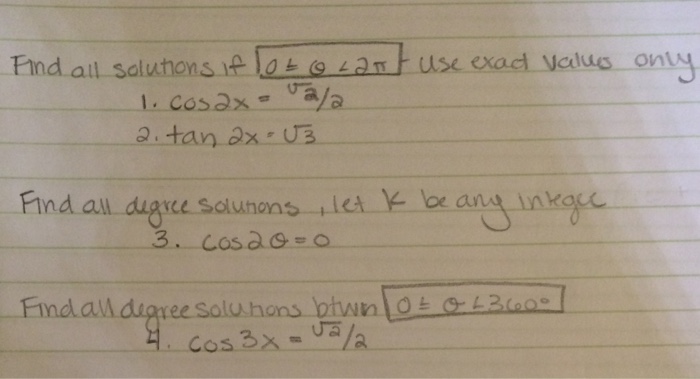 Find all solutions if 0 ≤ θ < 2π Use exact values only
1. cos2x = √2/2
2. tan 2x = √3
Find all degree solutions, let K be any integer
3. cos2θ = 0
Find all degree solutions btwn 0 ≤ θ < 360°
4. cos 3x = √2/2